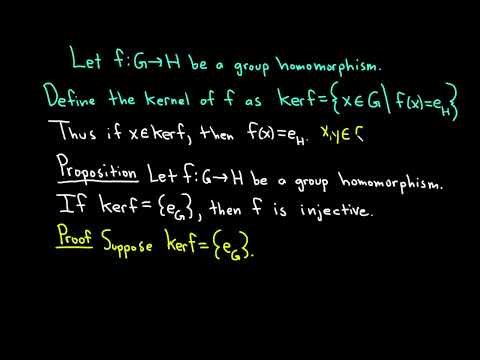 Let f:G→H be a group homomorphism.
Define the kernel of f as kerf={x∈G|f(x)=e_H}
Thus if x∈kerf, then f(x)=e_H. x,y∈
Proposition Let f:G→H be a group homomorphism.
If kerf={e_G}, then f is injective.
Proof Suppose kerf={e_G}.